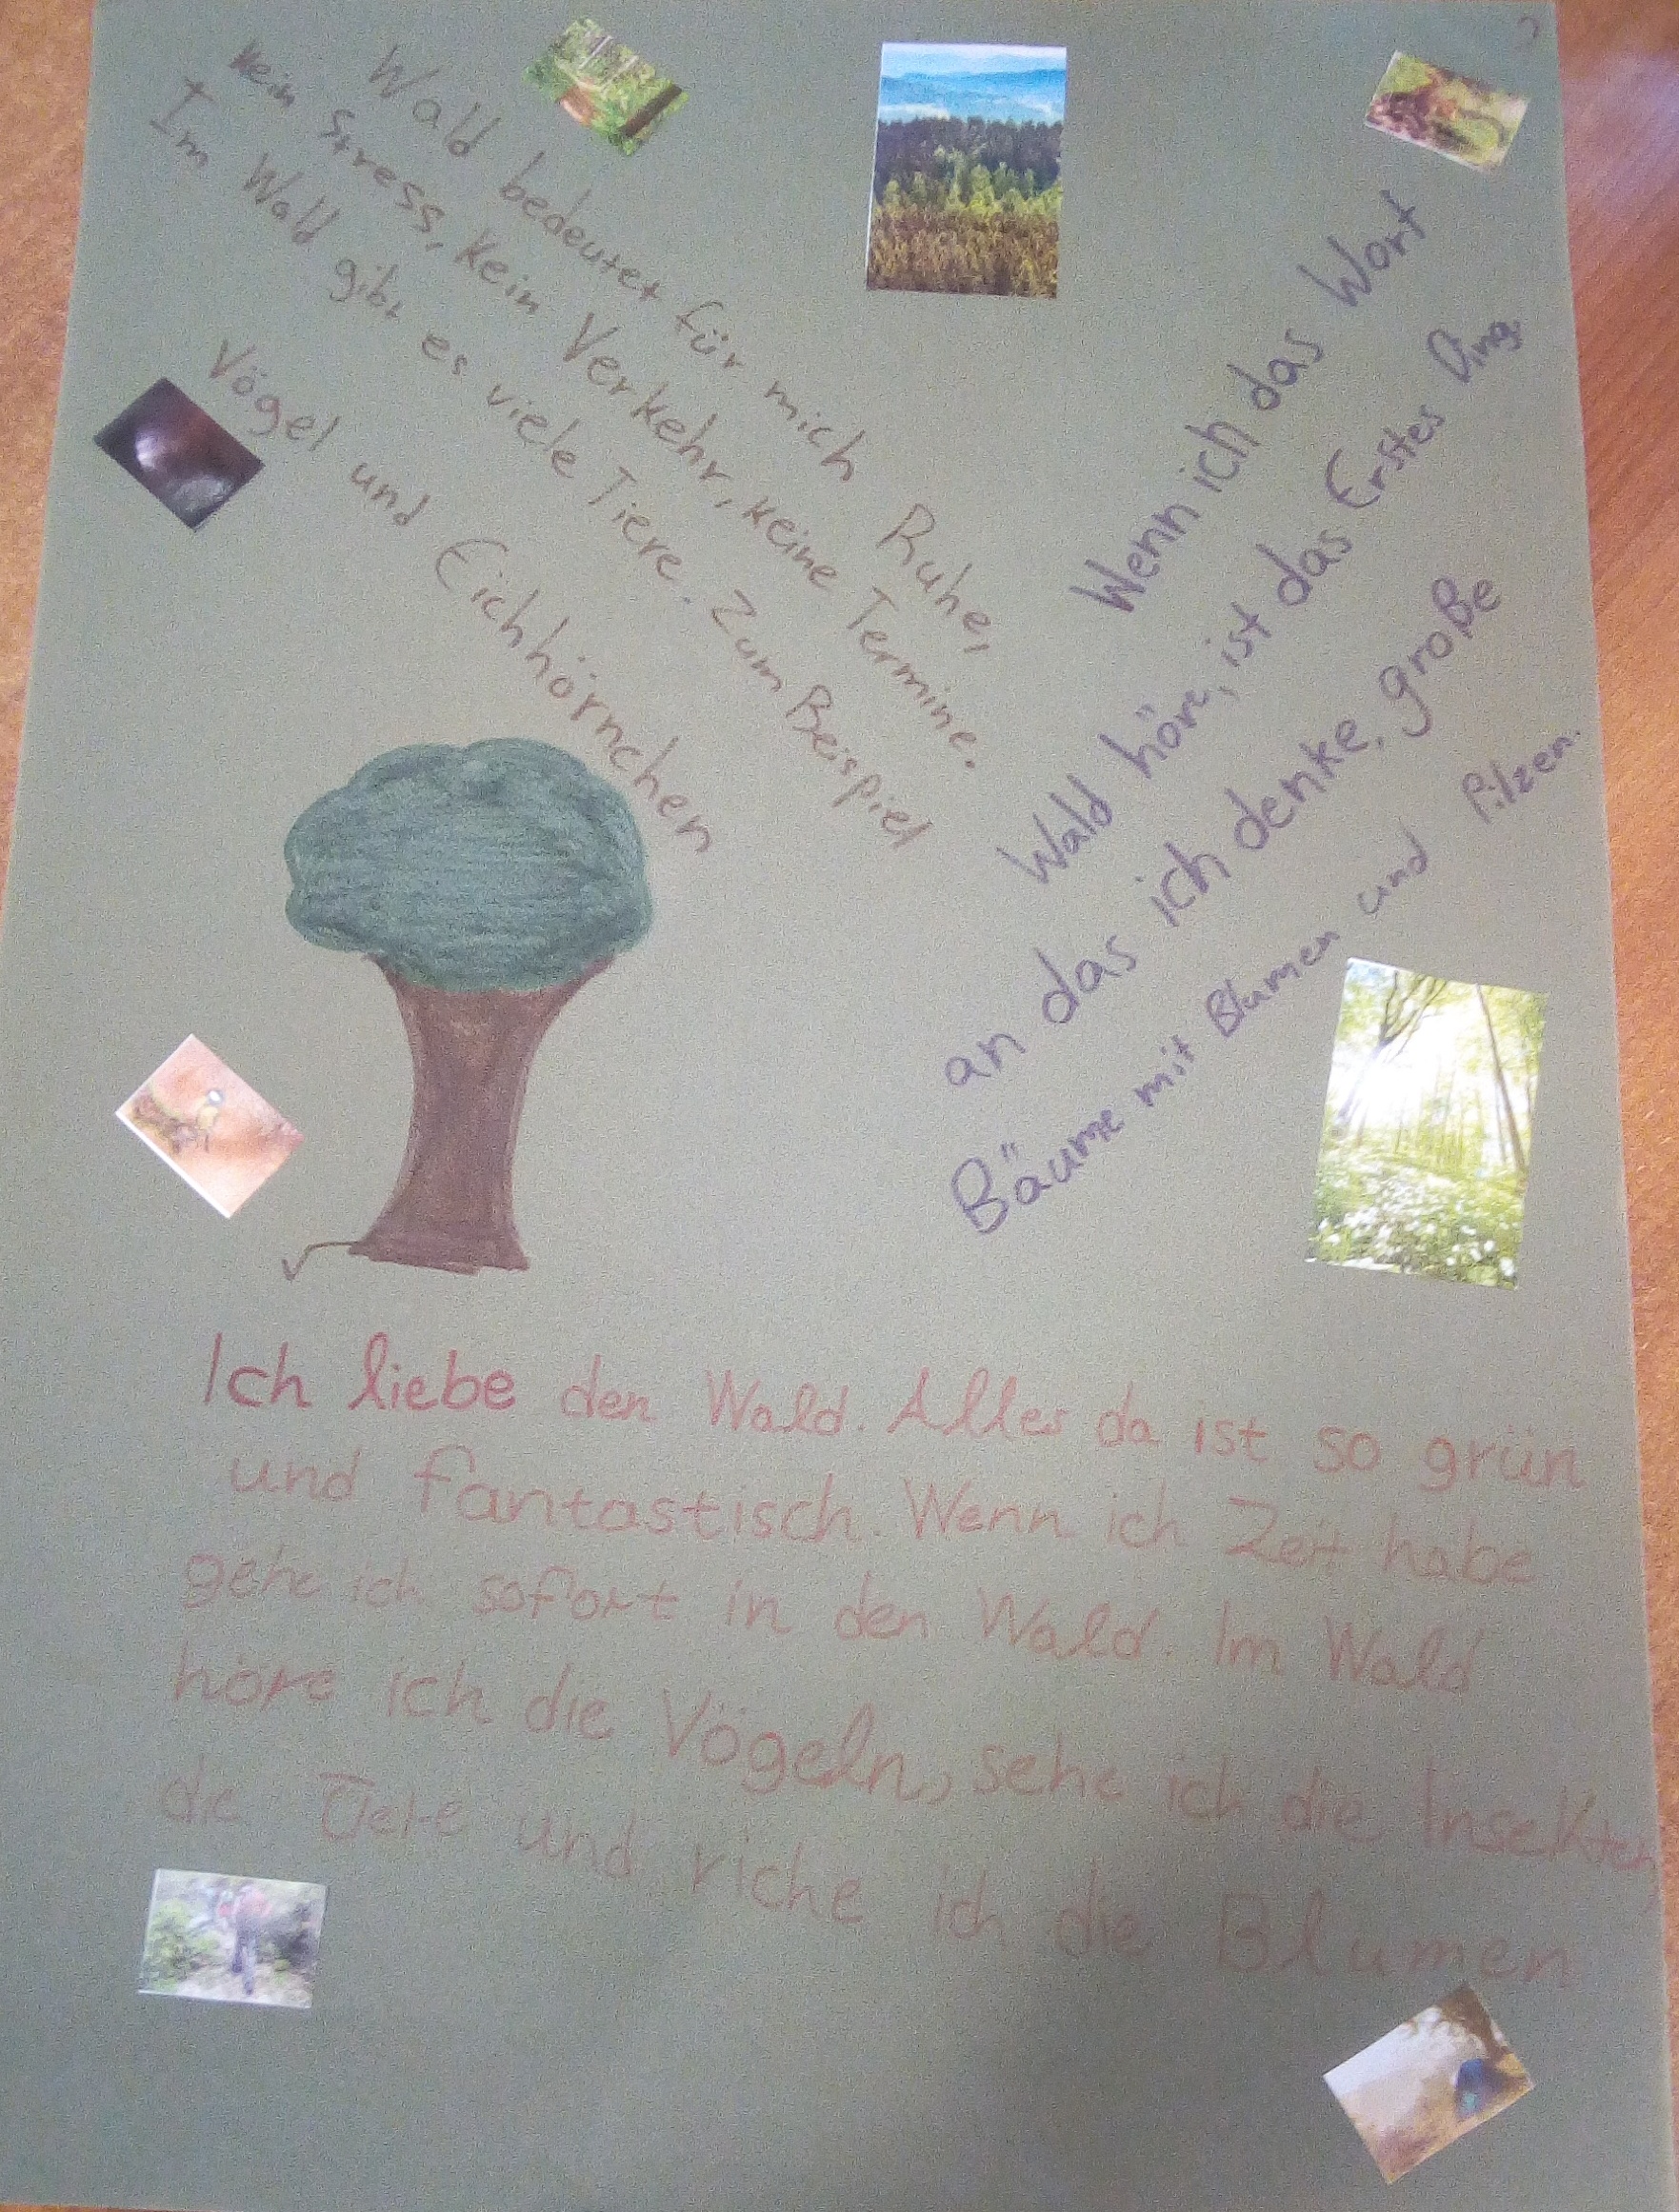 Wald bedeutet für mich Ruhe,
kein Stress, kein Verkehr, keine Termine.
Im Wald gibt es viele Tiere. Zum Beispiel
Vögel und Eichhörnchen
Wenn ich das Wort
Wald höre, ist das Erstes Ding
an das ich denke, große
Bäume mit Blumen und Pilzen.
Ich liebe den Wald. Alles da ist so grün
und fantastisch. Wenn ich Zeit habe
gehe ich sofort in den Wald. Im Wald
höre ich die Vögeln, sehe ich die Insekten,
die Tiere und riche ich die Blumen